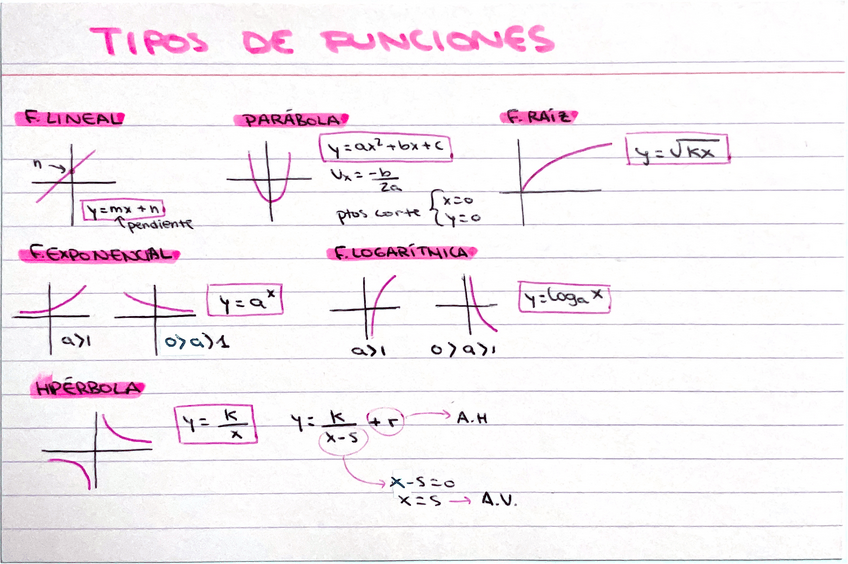 TIPOS DE FUNCIONES
F. LINEAL
n →
y=mx+n
pendiente
PARÁBOLA
y=ax²+bx+c
Vx = -b/2a
ptos corte { x=0 y=0
F. RAÍZ
y=√Kx
F. EXPONENCIAL
a>1
0>a>1
y=a^x
F. LOGARÍTMICA
a>1
0>a>1
y=loga x
HIPÉRBOLA
y = K/x
y = K/(x-s) + r → A.H
x-s=0
x=s → A.V.